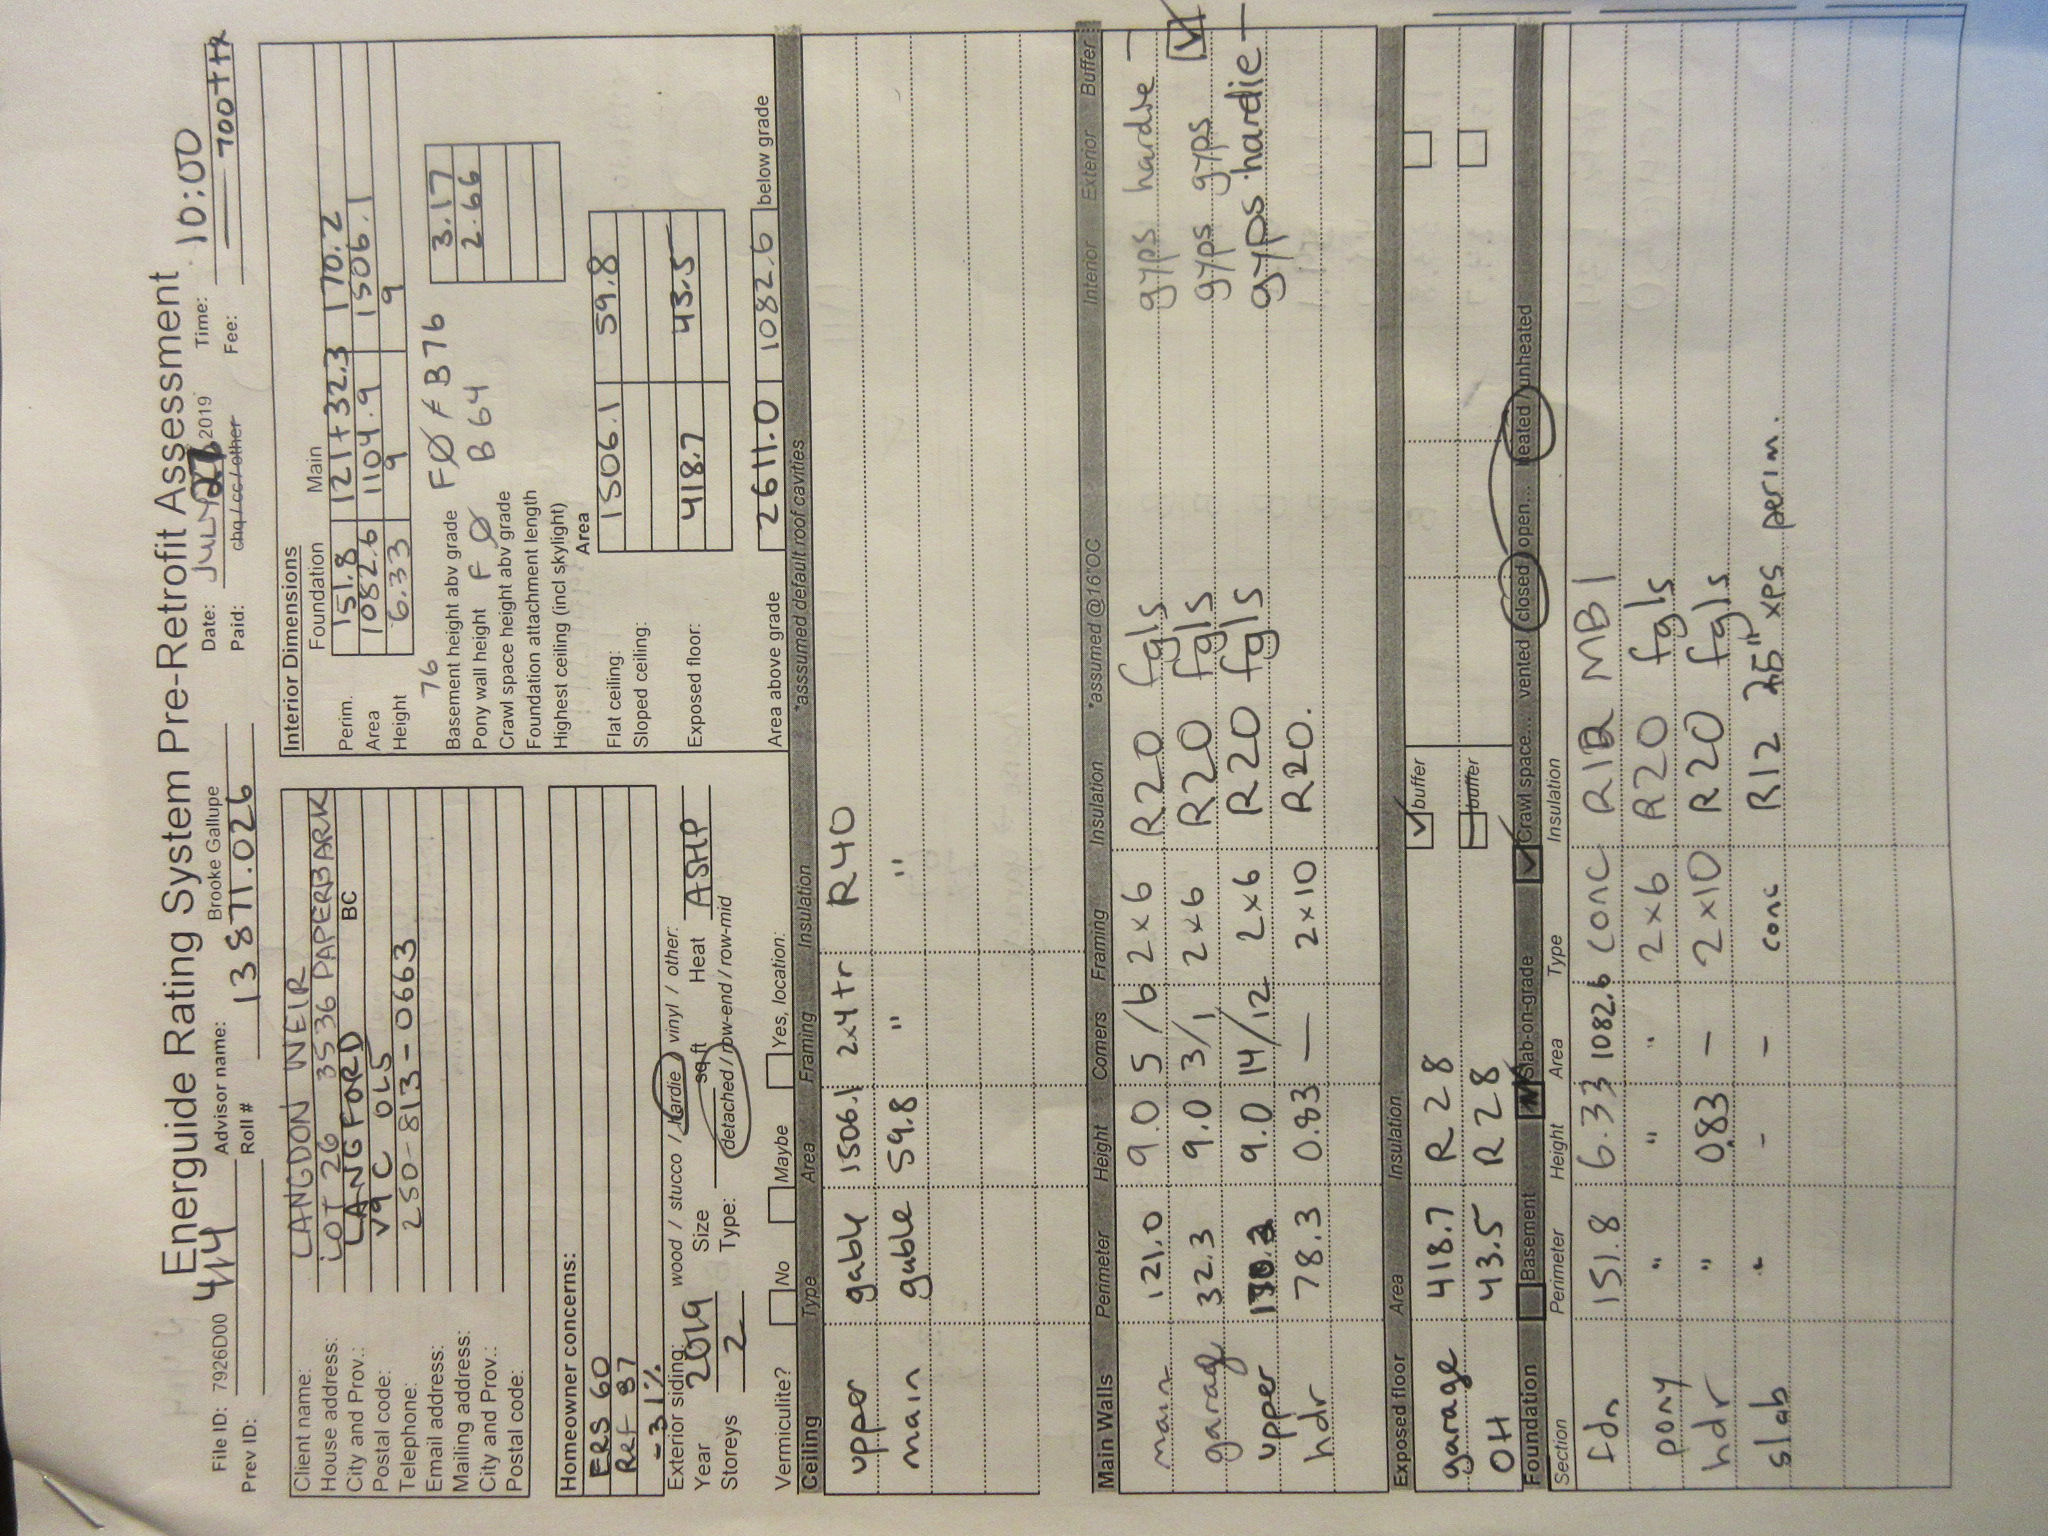 Energuide Rating System Pre-Retrofit Assessment
File ID: 7926D00 Advisor name: Brooke Gallupe Date: JULY 2019 Time: 10:00
Prev ID: Roll # 13871.026 Paid: chq / cc / other Fee: 700+tx
Client name: LANGDON WEIR
House address: LOT 26 3536 PAPERBARK
City and Prov.: LANGFORD BC
Postal code: V9C 0L5
Telephone: 250-813-0663
Email address:
Mailing address:
City and Prov.:
Postal code:
Homeowner concerns:
ERS 60
Ref 87
-31%
Exterior siding: wood / stucco / Hardie / vinyl / other:
Year 2019 Size sq ft Heat ASHP
Storeys 2 Type: detached / row-end / row-mid
Vermiculite? No Maybe Yes, location:
Interior Dimensions
Foundation Main
Perim. 151.8 121+32.3 170.2
Area 1082.6 1104.9 1506.1
Height 6.33 9 9
76
Basement height abv grade FØ B76 3.17
Pony wall height F Ø B 64 2.66
Crawl space height abv grade
Foundation attachment length
Highest ceiling (incl skylight)
Area
Flat ceiling: 1506.1 59.8
Sloped ceiling:
Exposed floor: 418.7 43.5
Area above grade 2611.0 1082.6 below grade
Ceiling Type Area Framing Insulation *asssumed default roof cavities
upper gable 1506.1 2x4 tr R40
main gable 59.8 " "
Main Walls Perimeter Height Corners Framing Insulation *assumed @16"OC Interior Exterior Buffer
main 121.0 9.0 5/6 2x6 R20 fgls gyps hardie —
garage 32.3 9.0 3/1 2x6 R20 fgls gyps gyps
upper 9.0 14/12 2x6 R20 fgls gyps hardie —
hdr 78.3 0.83 — 2x10 R20.
Exposed floor Area Insulation
garage 418.7 R28 buffer
OH 43.5 R28 buffer
Foundation Basement Slab-on-grade Crawl space... vented / closed / open... heated / unheated
Section Perimeter Height Area Type Insulation
fdn 151.8 6.33 1082.6 conc MB1
pony " " " 2x6 R20 fgls
hdr " 0.83 — 2x10 R20 fgls
slab " - - conc R12 xps perim.